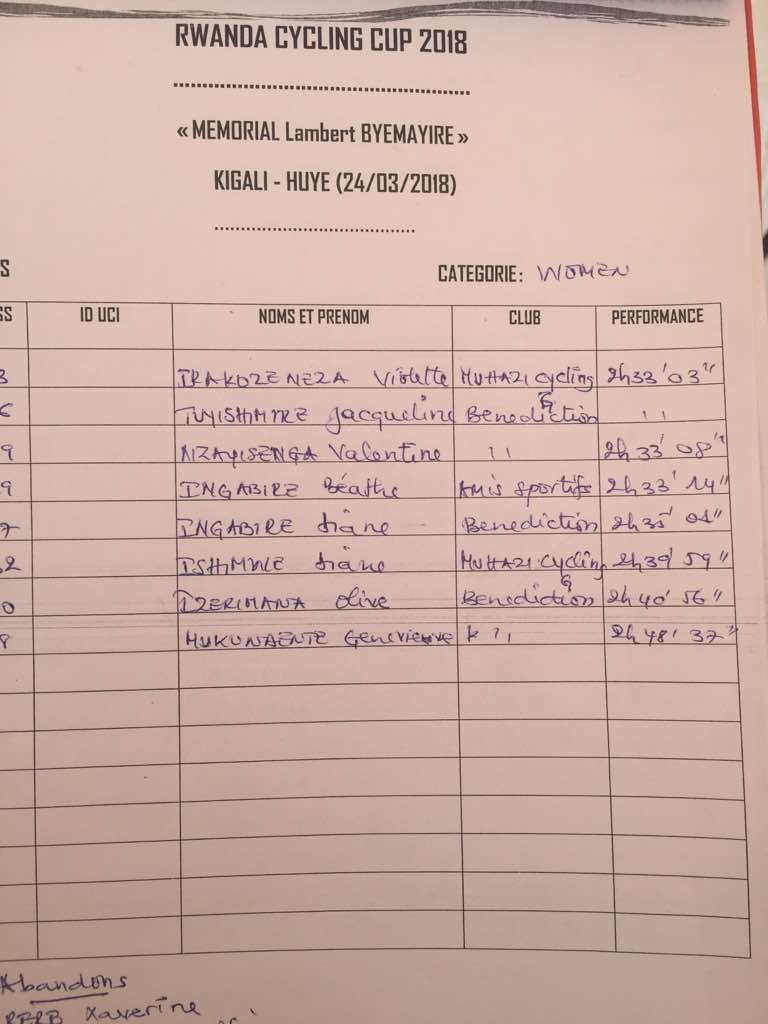 RWANDA CYCLING CUP 2018
« MEMORIAL Lambert BYEMAYIRE »
KIGALI - HUYE (24/03/2018)
S CATEGORIE: WOMEN
SS ID UCI NOMS ET PRENOM CLUB PERFORMANCE
3 IRAKOZE NEZA Violette MUHAZI cycling 2h33'03"
6 TUYISHIMIRE Jacqueline Benediction ''
9 NZAYISENGA Valentine '' 2h 33' 08"
9 INGABIRE Béathe AMIS sportifs 2h 33' 14"
7 INGABIRE diane Benediction 2h 35' 01"
2 ISHIMWE diane MUHAZI cycling 2h39' 59"
0 IZERIMANA olive Benediction 2h 40' 56"
8 Genevieuve '' 2h 48' 37"
Abandons
Xaverine